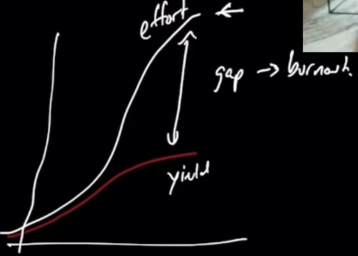 effort ←
gap → burnout.
yield